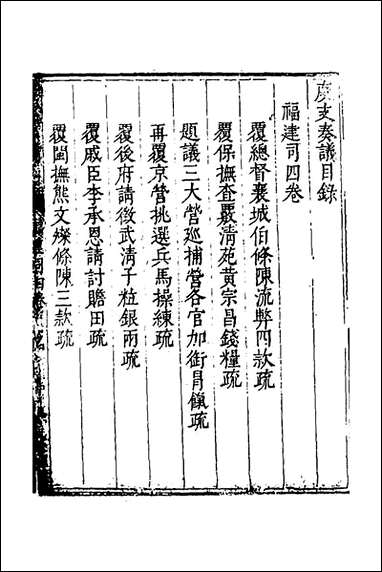 度支奏議目錄
福建司四卷
覆總督襄城伯條陳流弊四款疏
覆保撫查覈清苑黃宗昌錢糧疏
題議三大營巡捕營各官加銜冐餼疏
再覆京營挑選兵馬操練疏
覆後府請徵武清子粒銀兩疏
覆戚臣李承恩請討贍田疏
覆閩撫熊文燦條陳三款疏